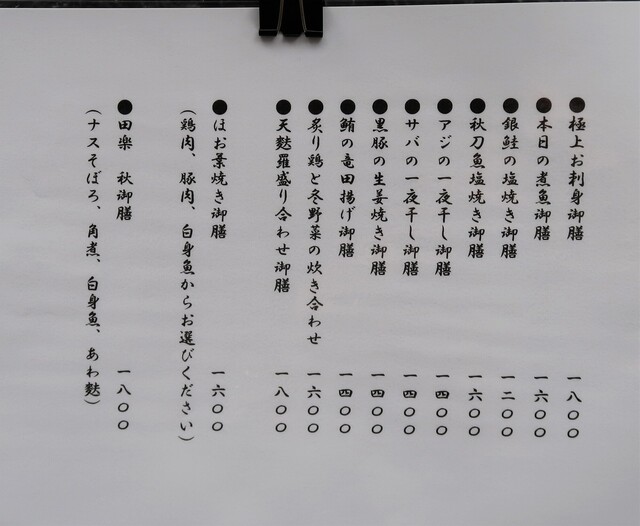 ●極上お刺身御膳 一八〇〇
●本日の煮魚御膳 一六〇〇
●銀鮭の塩焼き御膳 一二〇〇
●秋刀魚塩焼き御膳 一六〇〇
●アジの一夜干し御膳 一四〇〇
●サバの一夜干し御膳 一四〇〇
●黒豚の生姜焼き御膳 一四〇〇
●鮪の竜田揚げ御膳 一四〇〇
●炙り鶏と冬野菜の炊き合わせ 一六〇〇
●天麩羅盛り合わせ御膳 一八〇〇
●ほお葉焼き御膳 一六〇〇
(鶏肉、豚肉、白身魚からお選びください)
●田楽 秋御膳 一八〇〇
(ナスそぼろ、角煮、白身魚、あわ麩)